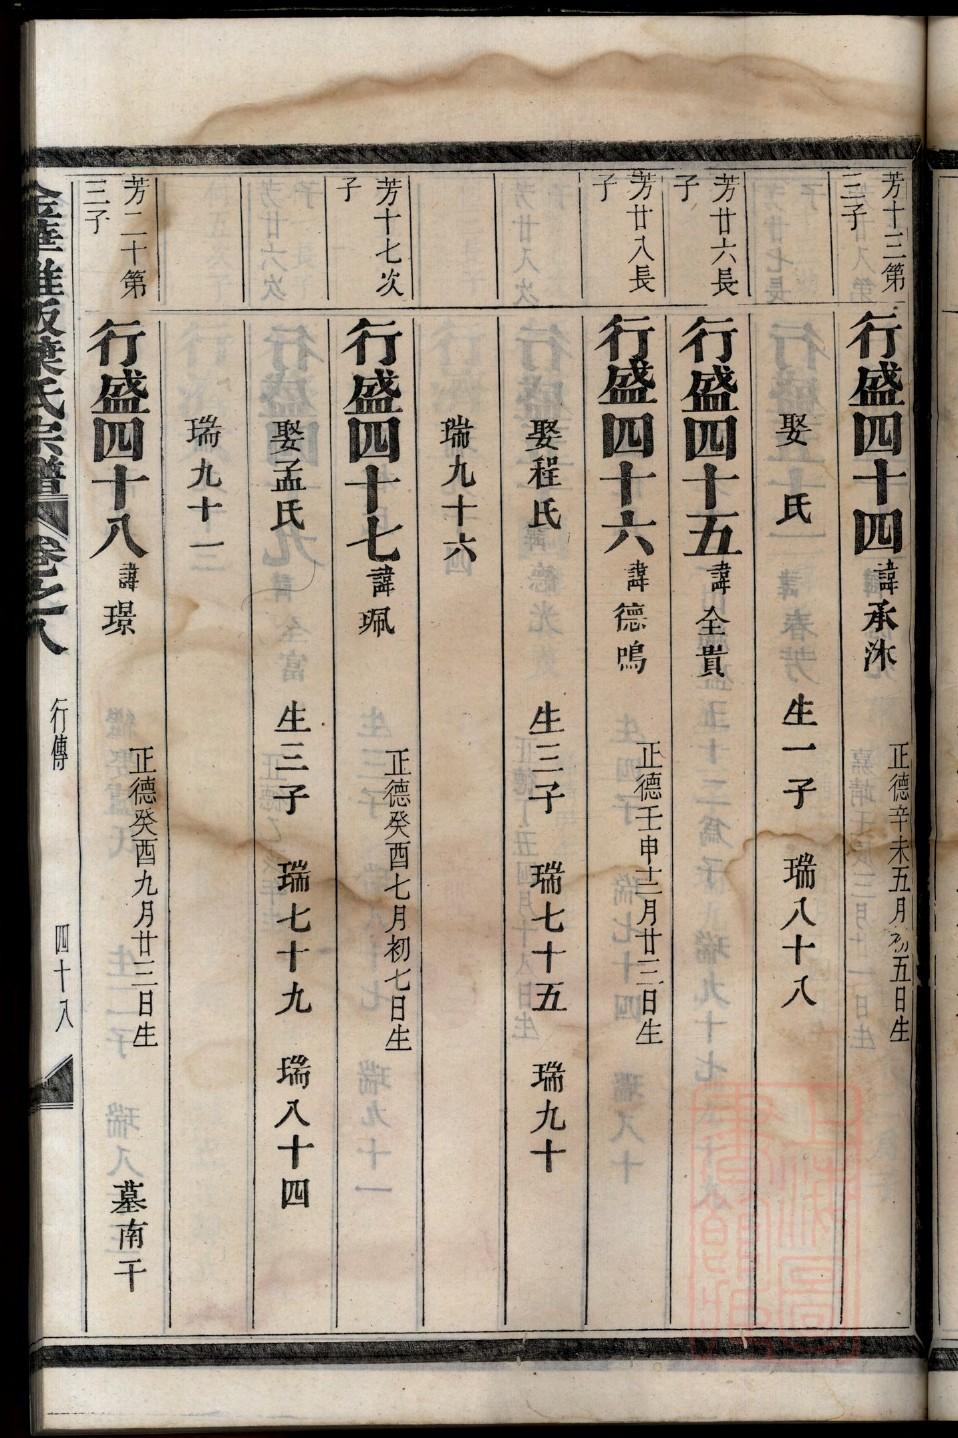 芳十三第
三子
行盛四十四 諱承沐 正德辛未五月初五日生
娶 氏 生一子 瑞八十八
芳廿六長
子
行盛四十五 諱全貴
芳廿八長
子
行盛四十六 諱德鳴 正德壬申十二月廿三日生
娶程氏 生三子 瑞七十五 瑞九十
瑞九十六
芳十七次
子
行盛四十七 諱珮 正德癸酉七月初七日生
娶孟氏 生三子 瑞七十九 瑞八十四
瑞九十一
芳二十第
三子
行盛四十八 諱璟 正德癸酉九月廿三日生 墓南干
葉氏宗譜 卷之八 行傳 四十八